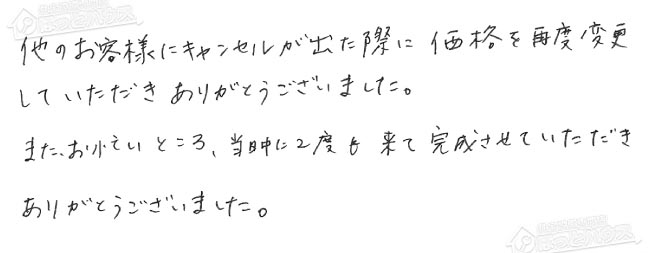 他のお客様にキャンセルが出た際に 価格を再度変更
していただき ありがとうございました。
また、お忙しい ところ、当日中に2度も 来て完成させていただき
ありがとうございました。